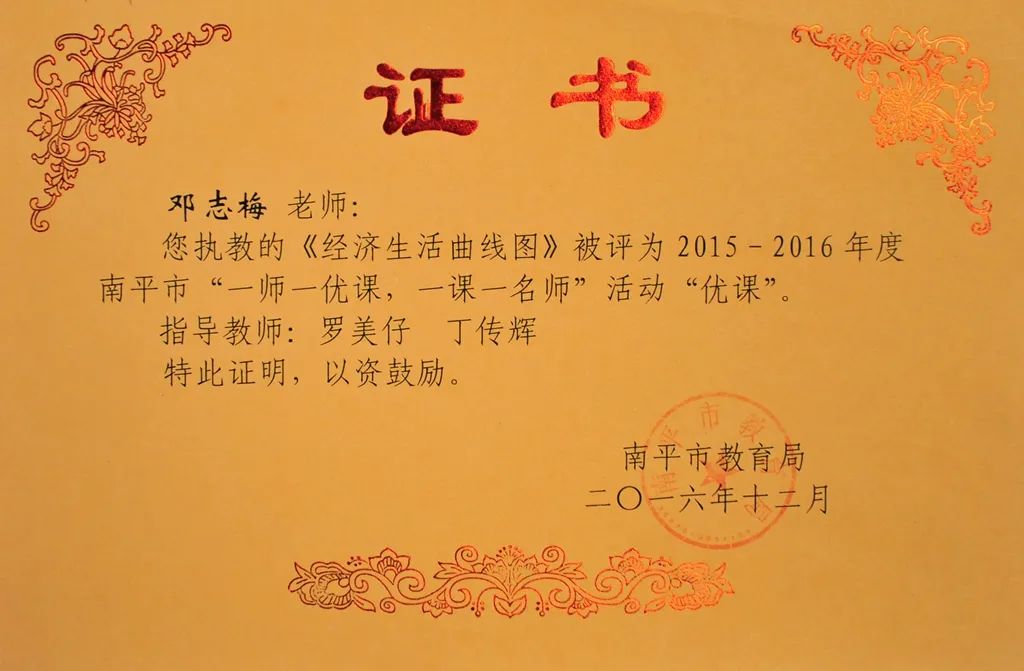 证书
邓志梅 老师:
您执教的《经济生活曲线图》被评为2015-2016年度
南平市“一师一优课,一课一名师”活动“优课”。
指导教师:罗美仔 丁传辉
特此证明,以资鼓励。
南平市教育局
二〇一六年十二月
南平市教育局